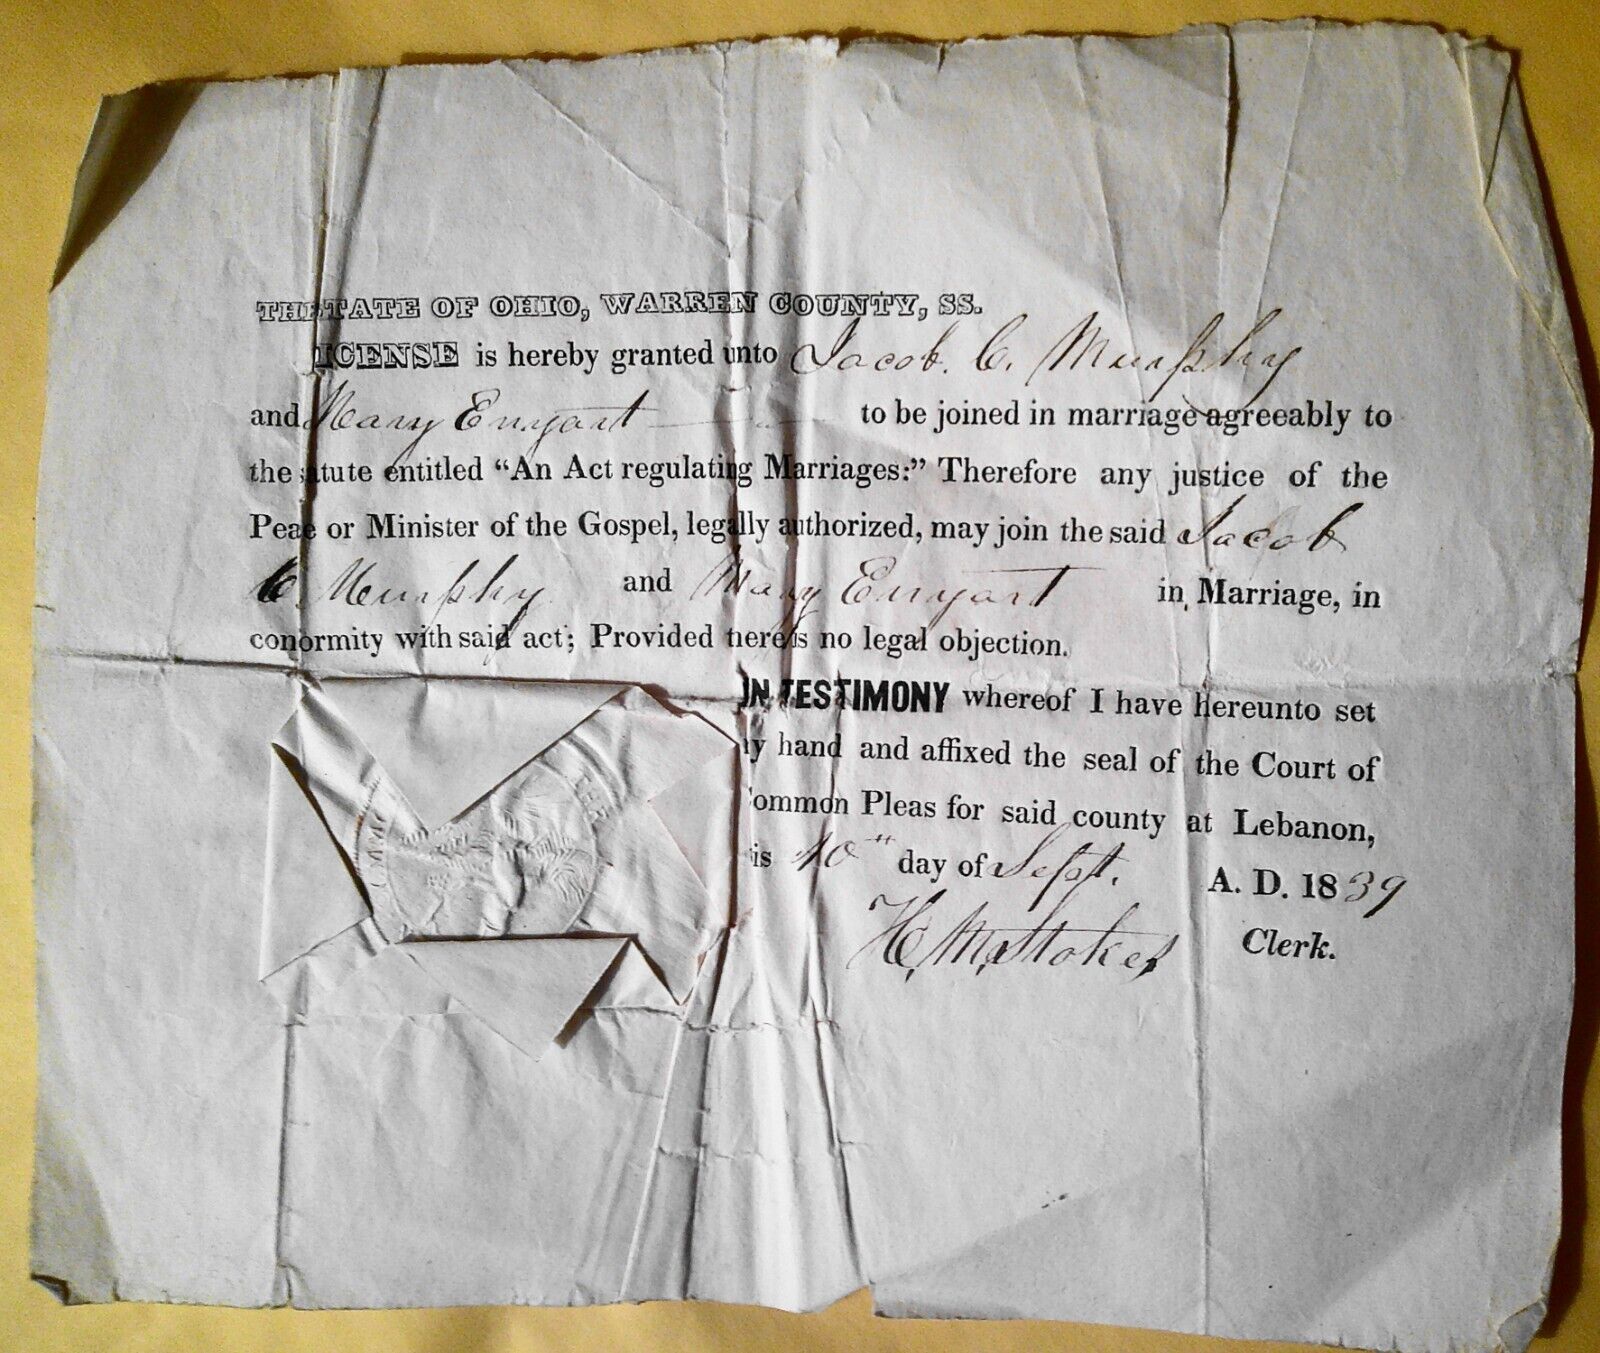 THE TATE OF OHIO, WARREN COUNTY, SS.
ICENSE is hereby granted unto Jacob. C. Murphy
and Mary Enyart to be joined in marriage agreeably to
the atute entitled “An Act regulating Marriages:” Therefore any justice of the
Peae or Minister of the Gospel, legally authorized, may join the said Jacob
C. Murphy and Mary Enyart in Marriage, in
conormity with said act; Provided here is no legal objection.
IN TESTIMONY whereof I have hereunto set
y hand and affixed the seal of the Court of
ommon Pleas for said county at Lebanon,
is 10th day of Sept. A. D. 1839
H. M. Stokes Clerk.
THE